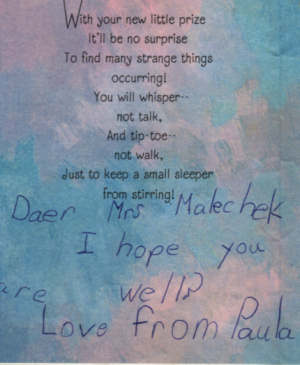 With your new little prize
It'll be no surprise
To find many strange things
occurring!
You will whisper--
not talk,
And tip-toe--
not walk,
Just to keep a small sleeper
from stirring!
Daer Mrs Malechek
I hope you
are well?
Love from Paula